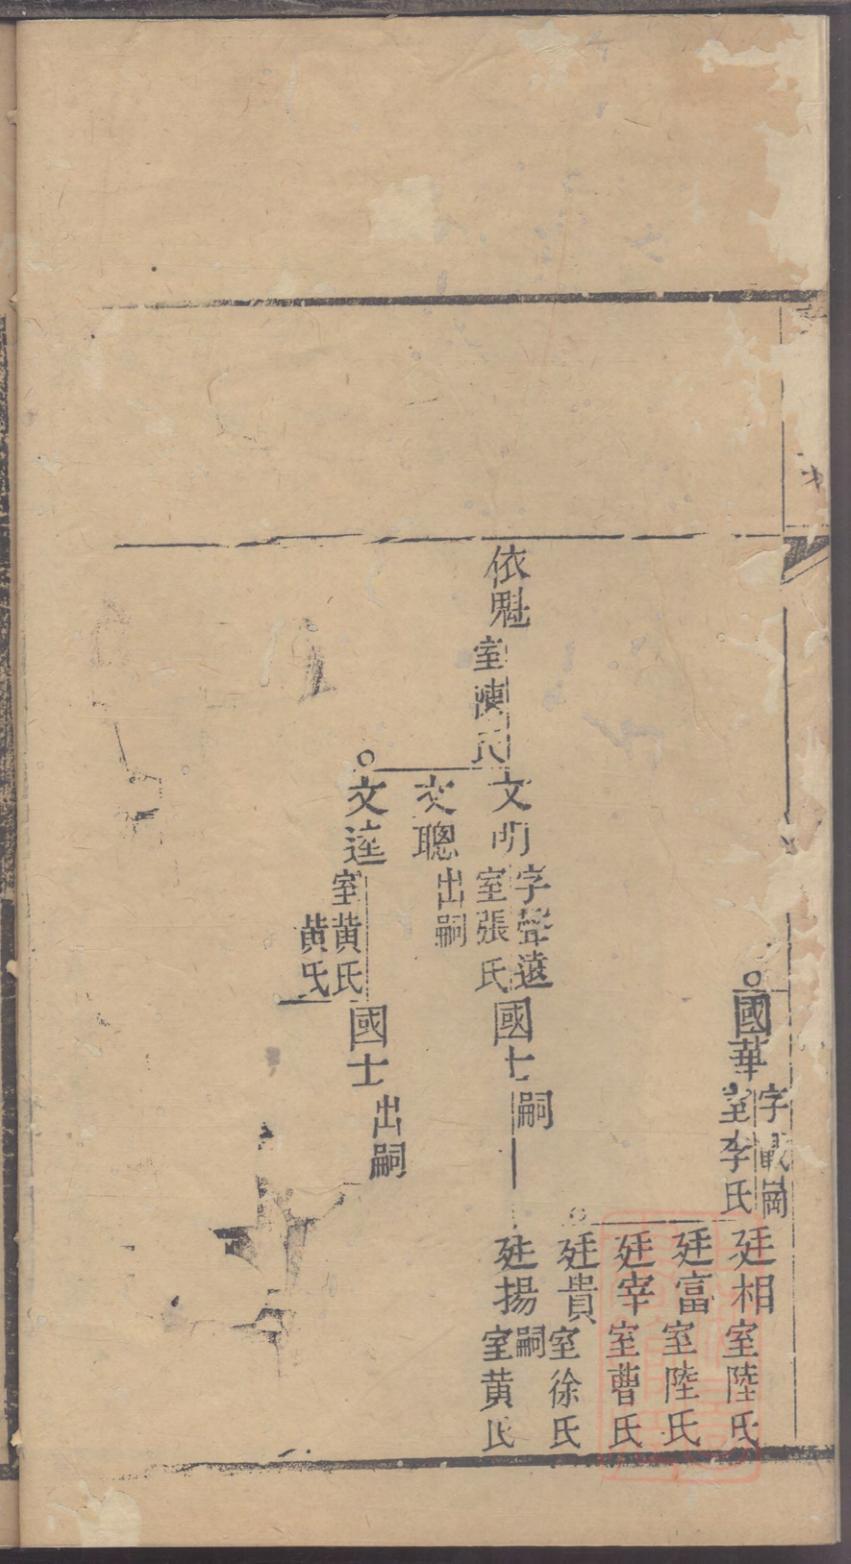 國華
字
室李氏
廷相
室陸氏
廷富
室陸氏
廷宰
室曹氏
廷貴
室徐氏
廷揚
嗣
室黄氏
依魁
室陳氏
文明
字聲遠
室張氏
國士
嗣
文聰
出嗣
文達
室黄氏
黄氏
國士
出嗣